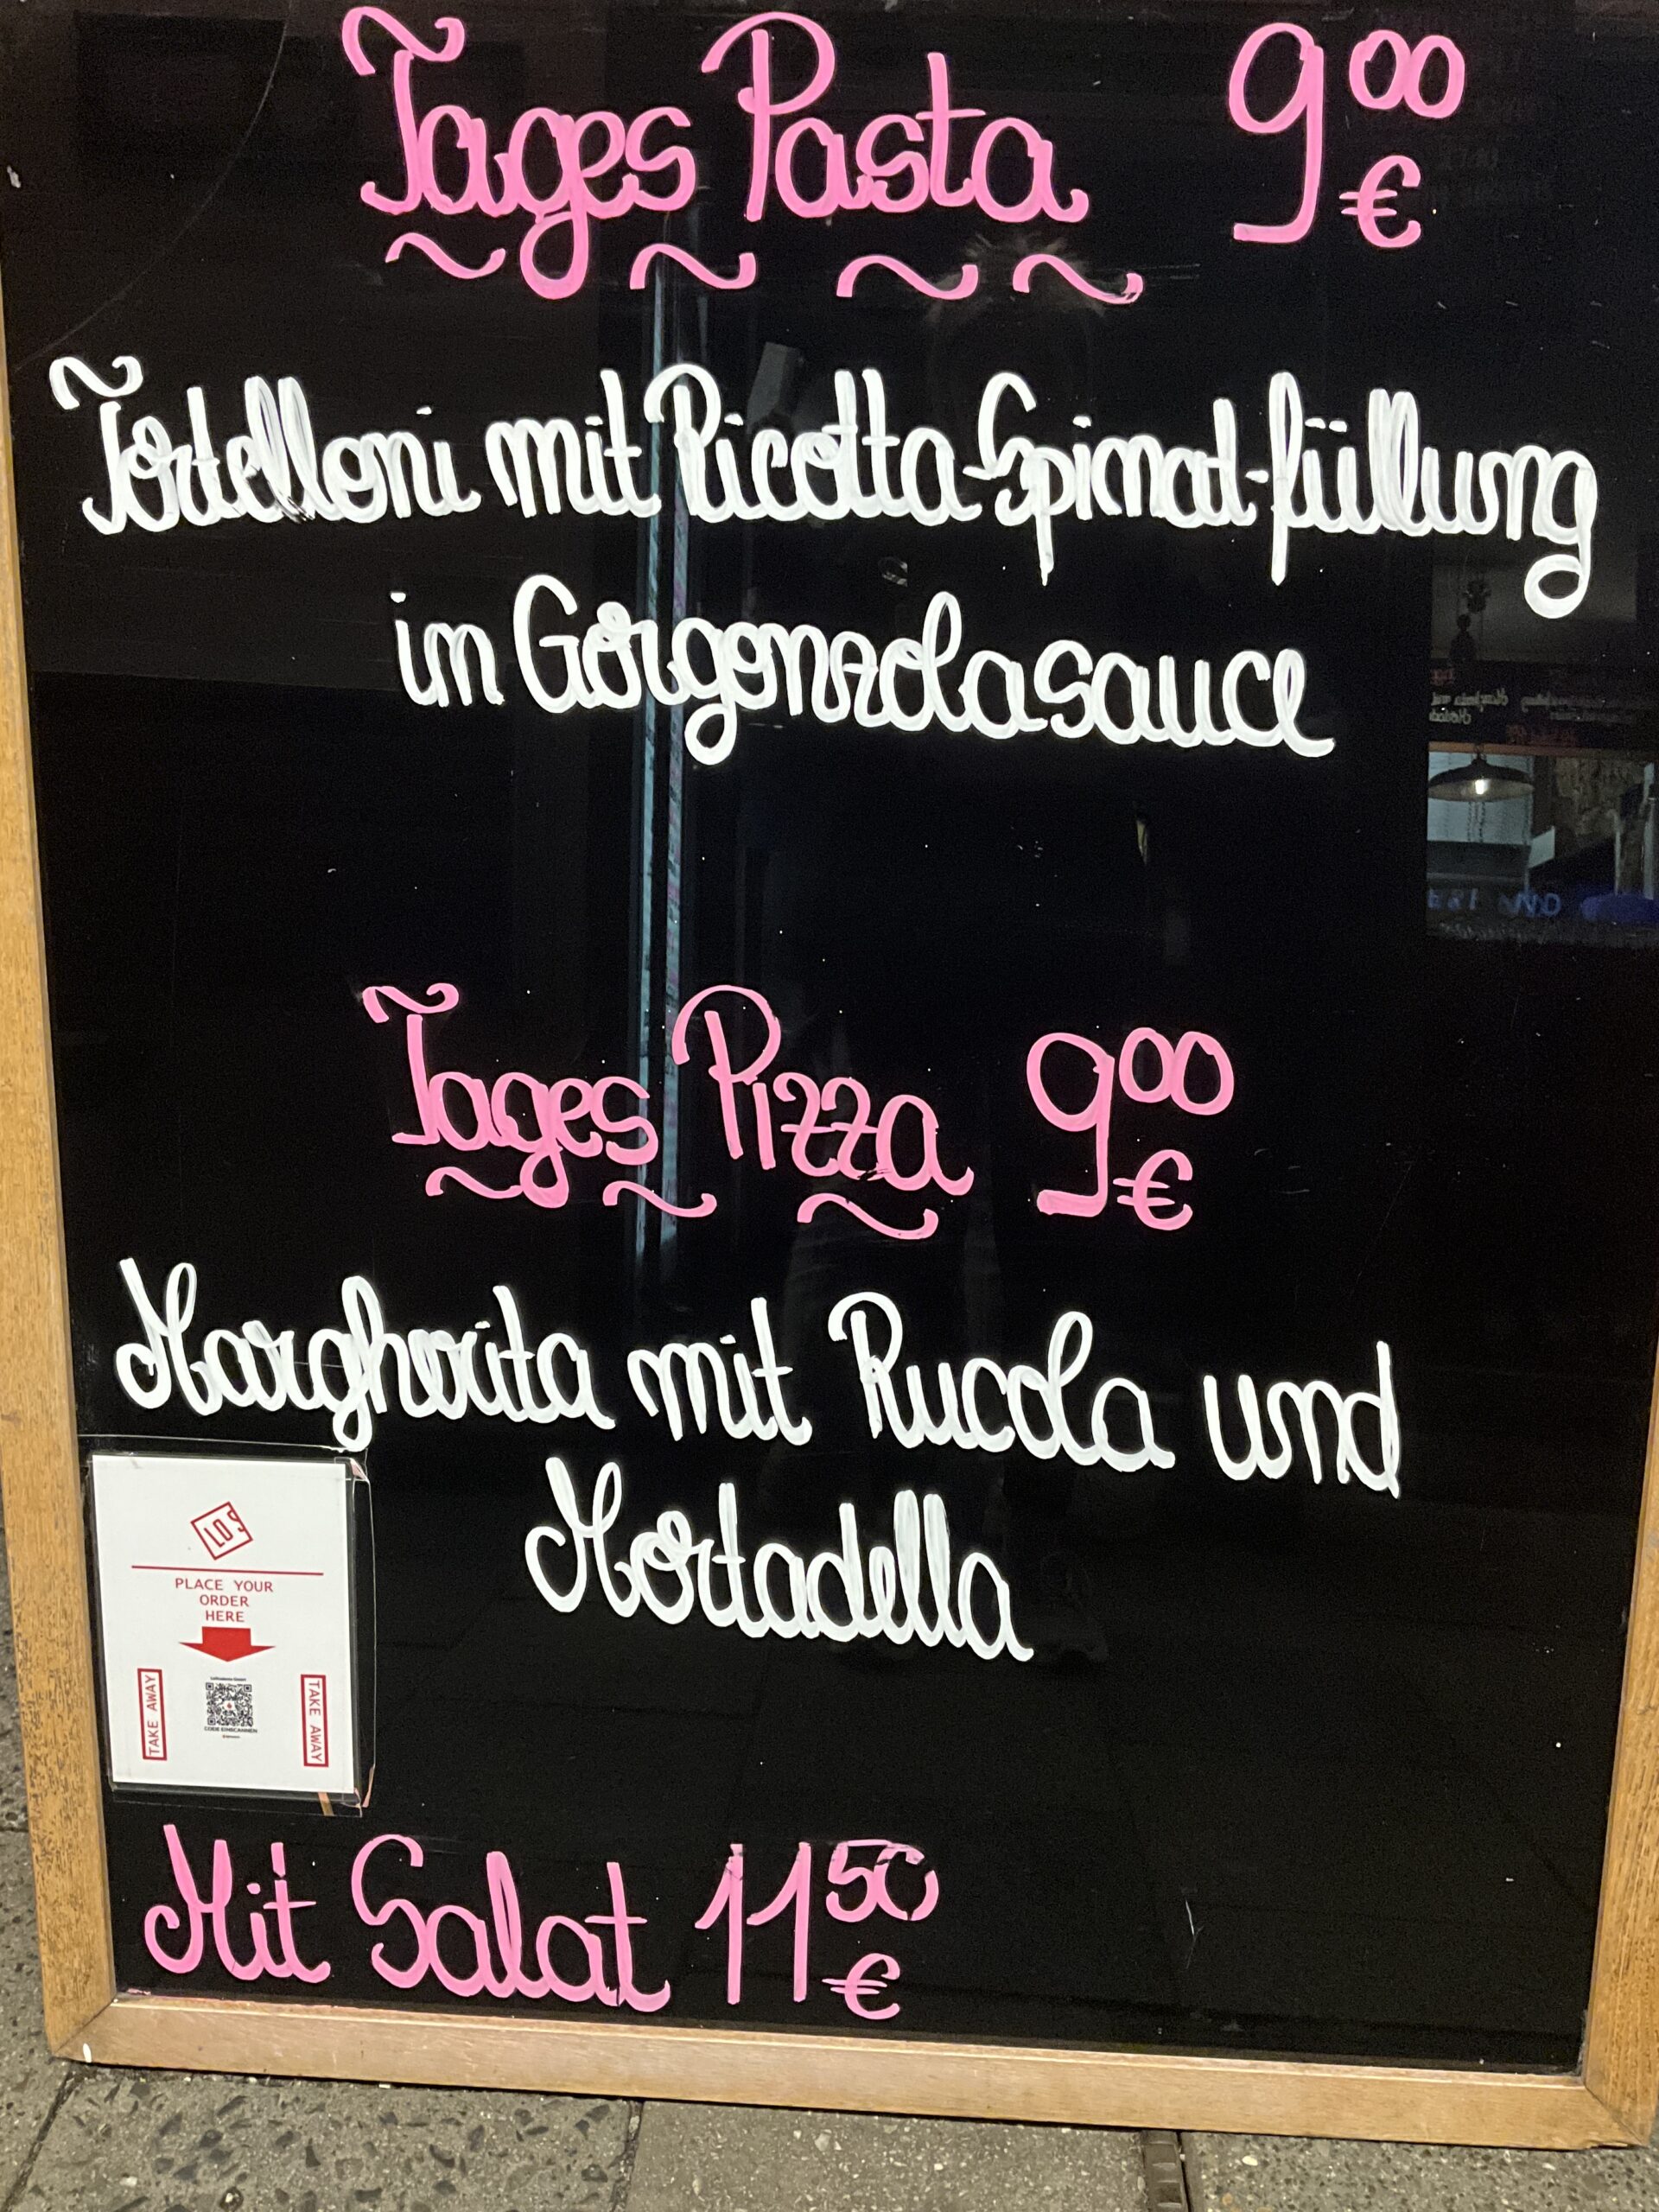 Tages Pasta 9,00 €
Tortelloni mit Ricotta-Spinat-füllung
in Gorgonzolasauce
Tages Pizza 9,00 €
Margherita mit Rucola und
Mortadella
LOS
PLACE YOUR
ORDER
HERE
TAKE AWAY
CODE EINSCANNEN
TAKE AWAY
Mit Salat 11,50 €